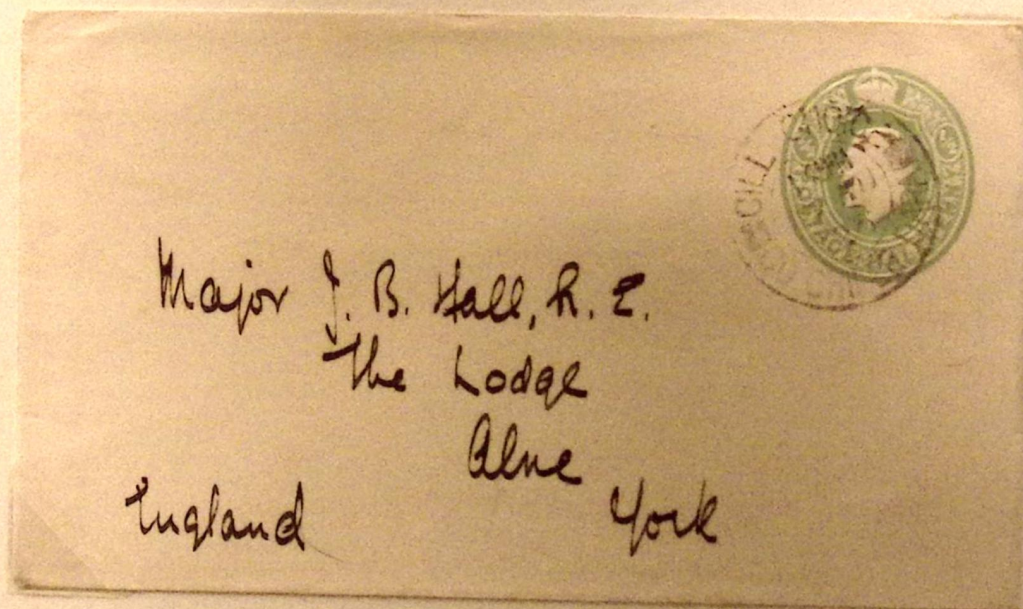 Major J. B. Hall, R. E.
The Lodge
Alne
York
England
POSTAGE